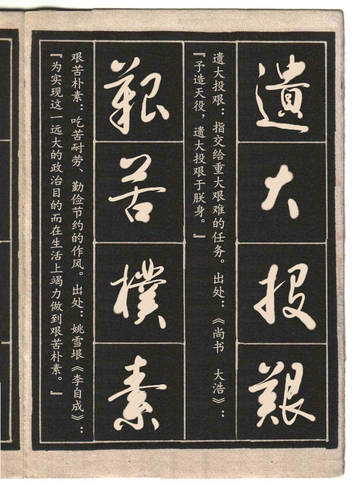 遺大投艱
遗大投艰：指交给重大艰难的任务。出处：《尚书 大浩》：
『予造天役，遗大投艰于朕身。』
艱苦樸素
艰苦朴素：吃苦耐劳、勤俭节约的作风。出处：姚雪垠《李自成》：
『为实现这一远大的政治目的而在生活上竭力做到艰苦朴素。』